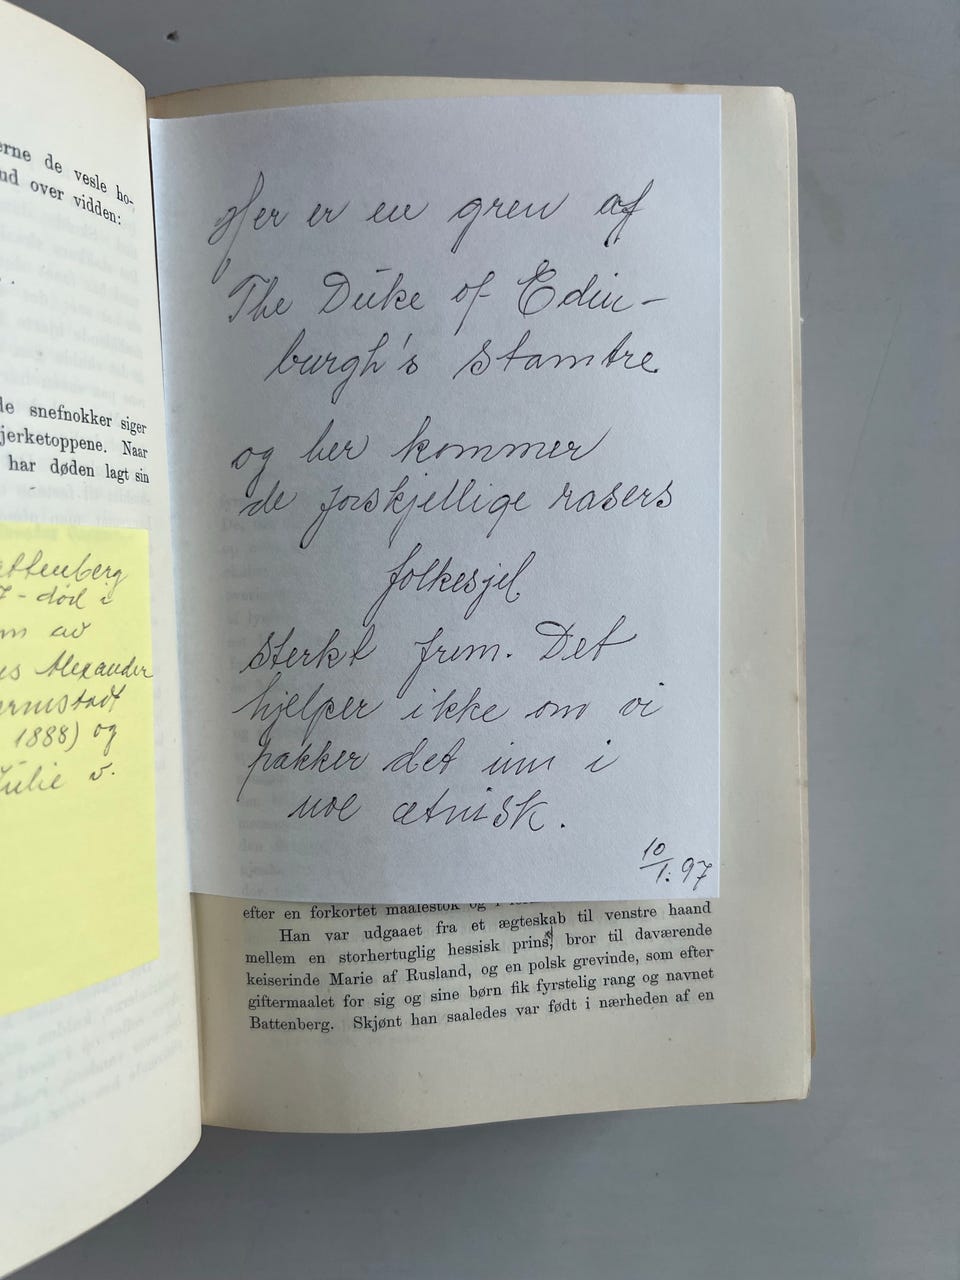 erne de vesle ho-
nd over vidden:
de snefnokker siger
jerketoppene. Naar
har døden lagt sin
attenberg
7 - død i
m av
us Alexander
armstadt
1888) og
Julie v.
Her er en gren af
The Duke of Edin-
burgh's stamtre
og her kommer
de forskjellige rasers
folkesjel
sterkt frem. Det
hjelper ikke om vi
pakker det inn i
noe etnisk.
10/1. 97
efter en forkortet maalestok og i
Han var udgaaet fra et ægteskab til venstre haand
mellem en storhertuglig hessisk prins, bror til daværende
keiserinde Marie af Rusland, og en polsk grevinde, som efter
giftermaalet for sig og sine børn fik fyrstelig rang og navnet
Battenberg. Skjønt han saaledes var født i nærheden af en